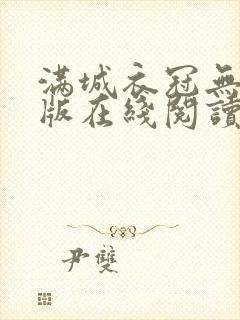 滿城衣冠無
版在綫閱讀
尹雙